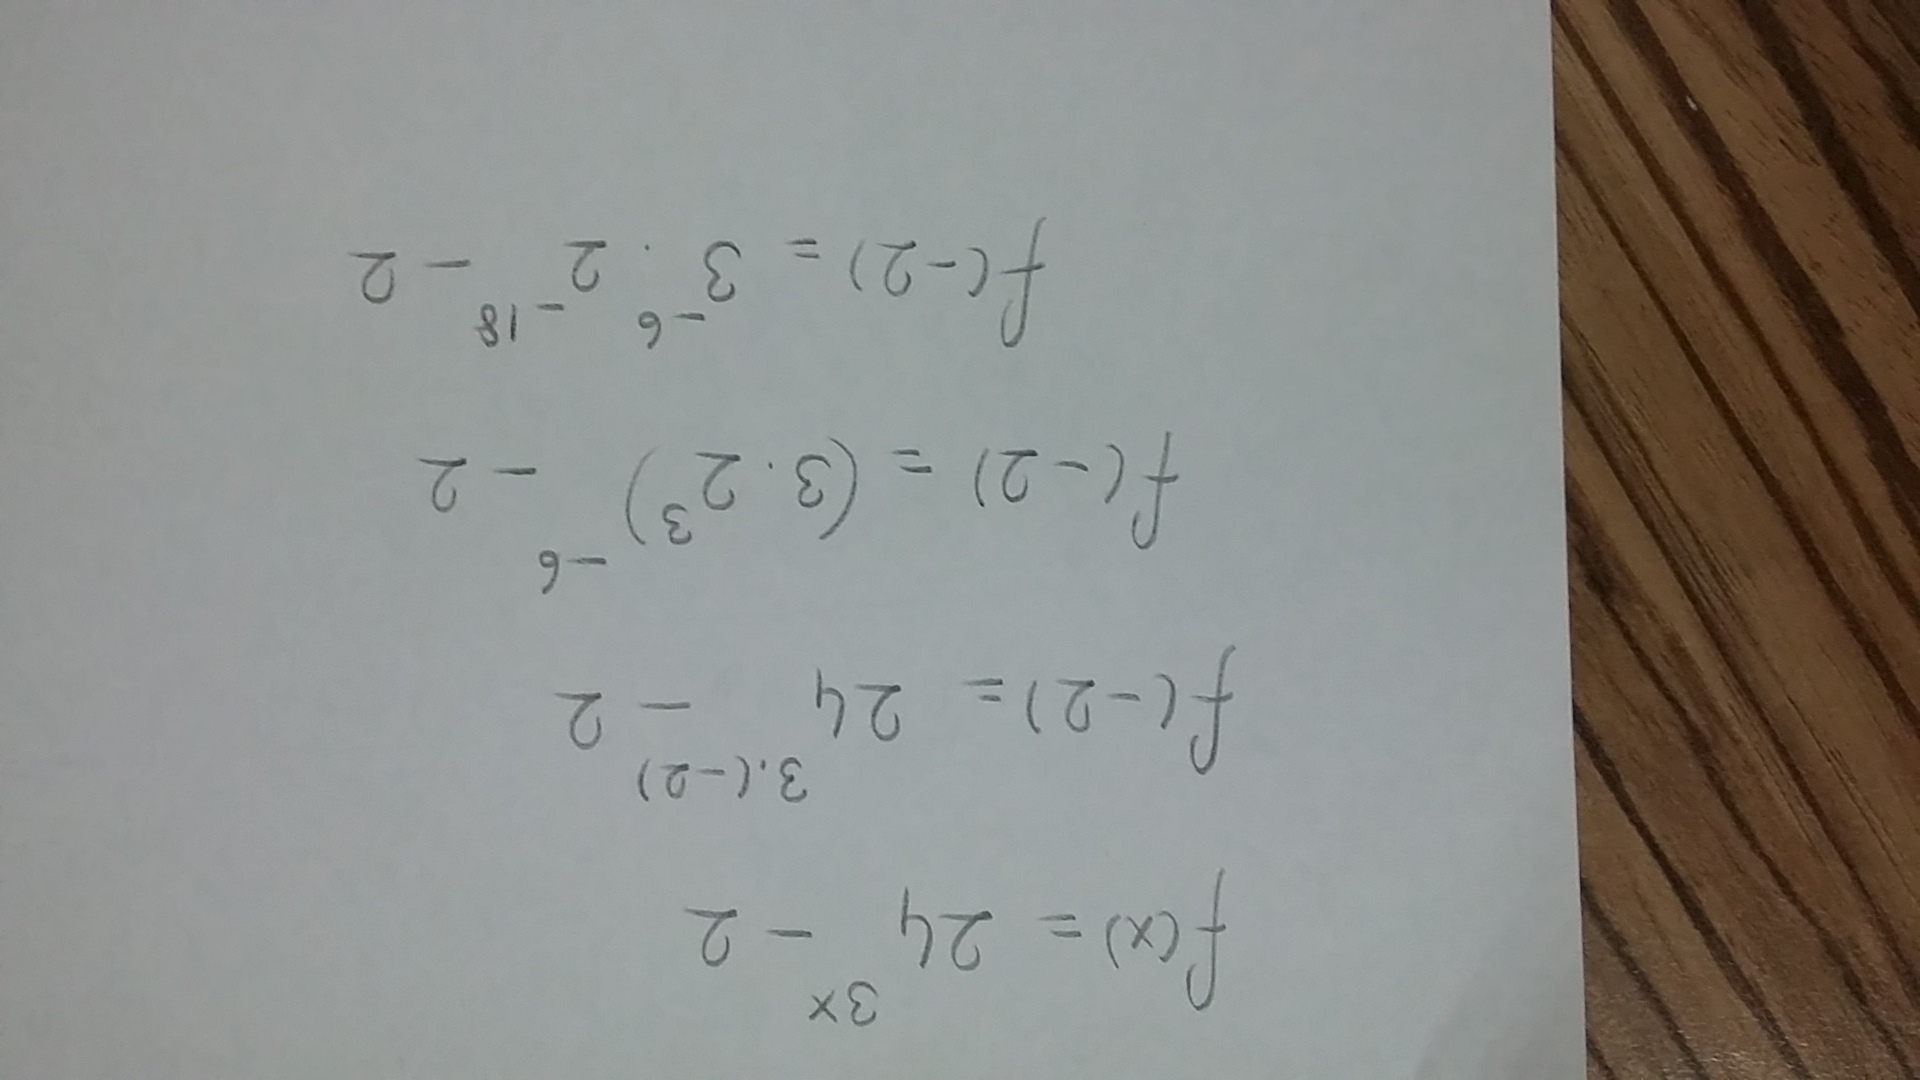 f(x) = 24^{3x} - 2
f(-2) = 24^{3.(-2)} - 2
f(-2) = (3.2^3)^{-6} - 2
f(-2) = 3^{-6} . 2^{-18} - 2